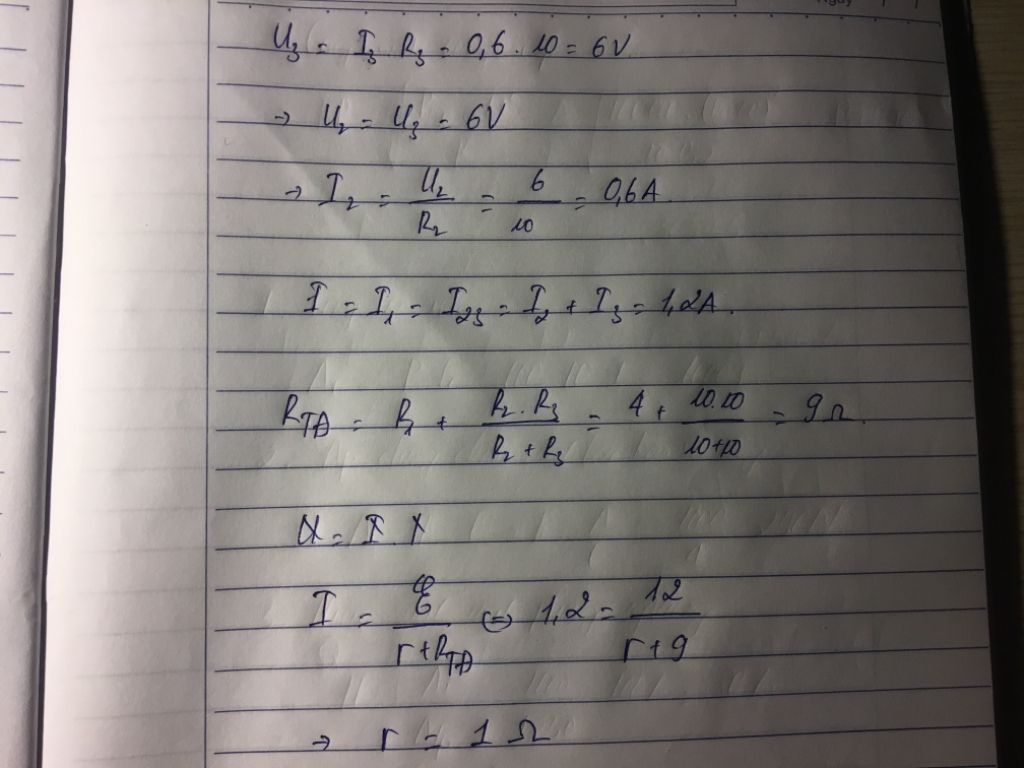 U₃ = I₃ R₃ = 0,6 . 10 = 6V
→ U₂ = U₃ = 6V
→ I₂ = U₂/R₂ = 6/10 = 0,6A.
I = I₁ = I₂₃ = I₂ + I₃ = 1,2A.
R_TĐ = R₁ + (R₂ . R₃)/(R₂ + R₃) = 4 + (10.10)/(10+10) = 9Ω.
I = ℰ/(r + R_TĐ) ⇔ 1,2 = 12/(r + 9)
→ r = 1 Ω